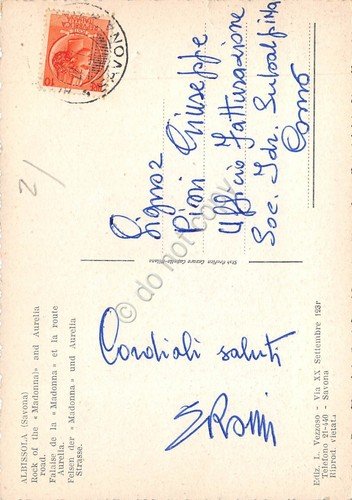 SAVONA
Signor
Pioni Giuseppe
Ufficio Fatturazione
Soc. Idr. Subalpina
Como
Cordiali saluti
2/
do not copy
ALBISSOLA (Savona)
Rock of the «Madonna» and Aurelia
road.
Falaise de la «Madonna» et la route
Aurelia.
Felsen der «Madonna» und Aurelia
Strasse.
Ediz. L. Vezzoso - Via XX Settembre 123r
Telefono 21-446 - Savona
Riprod. vietata